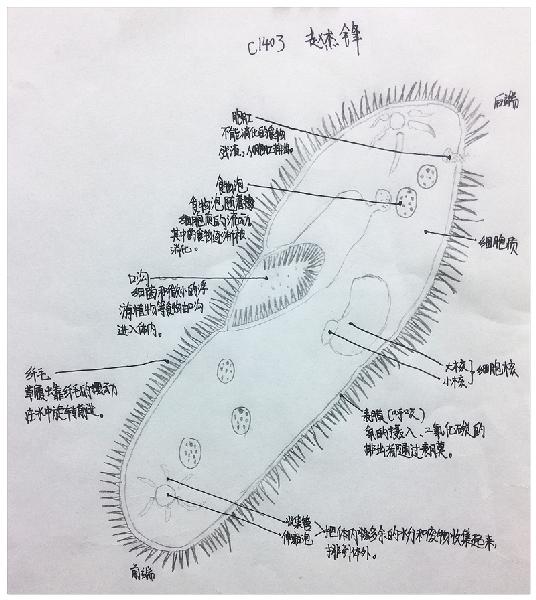 C1403 赵杰锋
后端
胞肛
不能消化的食物
残渣，从胞肛排出。
食物泡
食物泡随着
细胞质的流动，
其中的食物逐渐被
消化。
细胞质
口沟
细菌和微小的浮
游植物等食物由口沟
进入体内。
纤毛
草履虫靠纤毛的摆动
在水中旋转前进。
大核
小核
细胞核
表膜（呼吸）
氧的摄入、二氧化碳的
排出都通过表膜。
收集管
伸缩泡
把体内多余的水分和废物收集起来，
排到体外。
前端